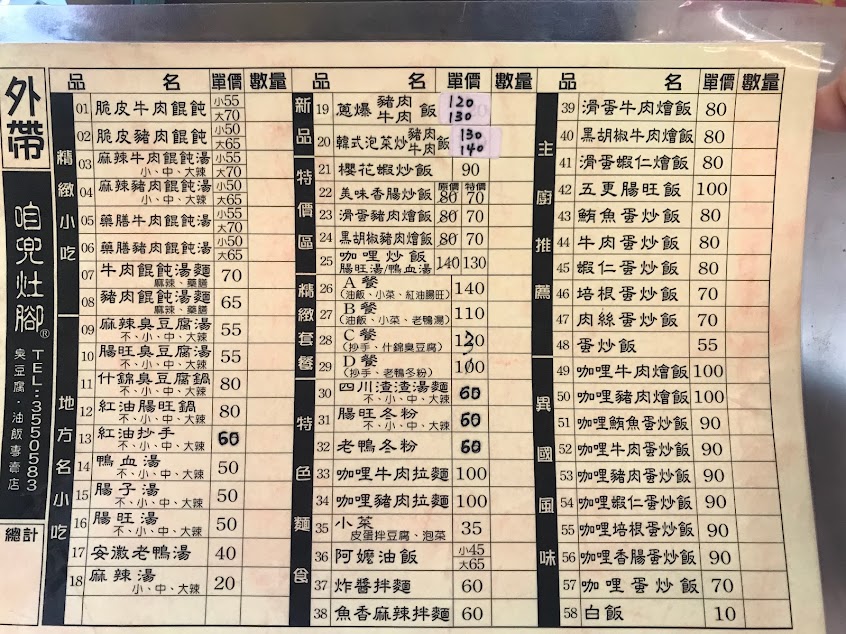 外帶
咱兜灶腳®
臭豆腐・油飯專賣店
TEL:3550583
總計
品 名 單價 數量
精緻小吃
01 脆皮牛肉餛飩 小55 大70
02 脆皮豬肉餛飩 小50 大65
03 麻辣牛肉餛飩湯 小、中、大辣 小55 大70
04 麻辣豬肉餛飩湯 小、中、大辣 小50 大65
05 藥膳牛肉餛飩湯 小55 大70
06 藥膳豬肉餛飩湯 小50 大65
07 牛肉餛飩湯麵 麻辣、藥膳 70
08 豬肉餛飩湯麵 麻辣、藥膳 65
地方名小吃
09 麻辣臭豆腐湯 不、小、中、大辣 55
10 腸旺臭豆腐湯 不、小、中、大辣 55
11 什錦臭豆腐鍋 不、小、中、大辣 80
12 紅油腸旺鍋 不、小、中、大辣 80
13 紅油抄手 不、小、中、大辣 60
14 鴨血湯 不、小、中、大辣 50
15 腸子湯 不、小、中、大辣 50
16 腸旺湯 不、小、中、大辣 50
17 安徽老鴨湯 40
18 麻辣湯 小、中、大辣 20
品 名 單價 數量
新品
19 蔥爆豬肉牛肉飯 120 130
20 韓式泡菜炒豬肉牛肉飯 130 140
特價區
21 櫻花蝦炒飯 90
22 美味香腸炒飯 原價80 特價70
23 滑蛋豬肉燴飯 80 70
24 黑胡椒豬肉燴飯 80 70
25 咖哩炒飯 腸旺湯/鴨血湯 140 130
精緻套餐
26 A餐 (油飯、小菜、紅油腸旺) 140
27 B餐 (油飯、小菜、老鴨湯) 110
28 C餐 (抄手、什錦臭豆腐)
29 D餐 (抄手、老鴨冬粉)
特色麵食
30 四川渣渣湯麵 不、小、中、大辣 60
31 腸旺冬粉 不、小、中、大辣 60
32 老鴨冬粉 60
33 咖哩牛肉拉麵 100
34 咖哩豬肉拉麵 100
35 小菜 皮蛋拌豆腐、泡菜 35
36 阿嬤油飯 小45 大65
37 炸醬拌麵 60
38 魚香麻辣拌麵 60
品 名 單價 數量
主廚推薦
39 滑蛋牛肉燴飯 80
40 黑胡椒牛肉燴飯 80
41 滑蛋蝦仁燴飯 80
42 五更腸旺飯 100
43 鮪魚蛋炒飯 80
44 牛肉蛋炒飯 80
45 蝦仁蛋炒飯 80
46 培根蛋炒飯 70
47 肉絲蛋炒飯 70
48 蛋炒飯 55
異國風味
49 咖哩牛肉燴飯 100
50 咖哩豬肉燴飯 100
51 咖哩鮪魚蛋炒飯 90
52 咖哩牛肉蛋炒飯 90
53 咖哩豬肉蛋炒飯 90
54 咖哩蝦仁蛋炒飯 90
55 咖哩培根蛋炒飯 90
56 咖哩香腸蛋炒飯 90
57 咖哩蛋炒飯 70
58 白飯 10